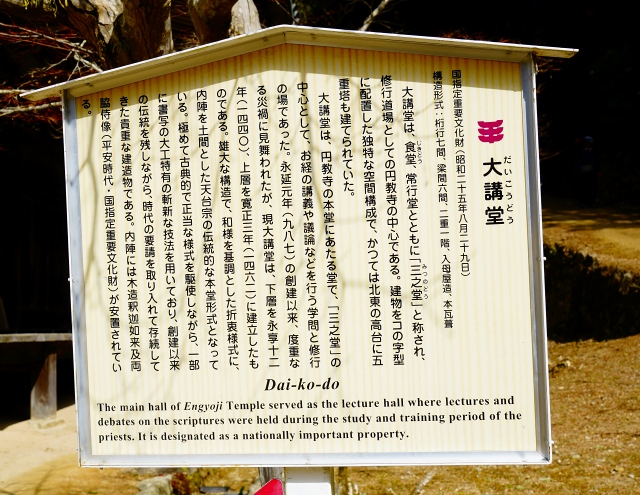 大講堂
だいこうどう
国指定重要文化財(昭和二十五年八月二十九日)
構造形式:桁行七間、梁間六間、二重一階、入母屋造、本瓦葺
大講堂は、食堂、常行堂とともに「三之堂」と称され、
じきどう
みつのどう
修行道場としての円教寺の中心である。建物をコの字型
に配置した独特な空間構成で、かつては北東の高台に五
重塔も建てられていた。
大講堂は、円教寺の本堂にあたる堂で、「三之堂」の
中心として、お経の講義や議論などを行う学問と修行
の場であった。永延元年(九八七)の創建以来、度重な
る災禍に見舞われたが、現大講堂は、下層を永享十二
年(一四四〇)、上層を寛正三年(一四六二)に建立したも
のである。雄大な構造で、和様を基調とした折衷様式に、
内陣を土間とした天台宗の伝統的な本堂形式となって
いる。極めて古典的で正当な様式を駆使しながら、一部
に書写の大工特有の斬新な技法を用いており、創建以来
の伝統を残しながら、時代の要請を取り入れて存続して
きた貴重な建造物である。内陣には木造釈迦如来及両
脇侍像(平安時代・国指定重要文化財)が安置されてい
る。
Dai-ko-do
The main hall of Engyoji Temple served as the lecture hall where lectures and
debates on the scriptures were held during the study and training period of the
priests. It is designated as a nationally important property.